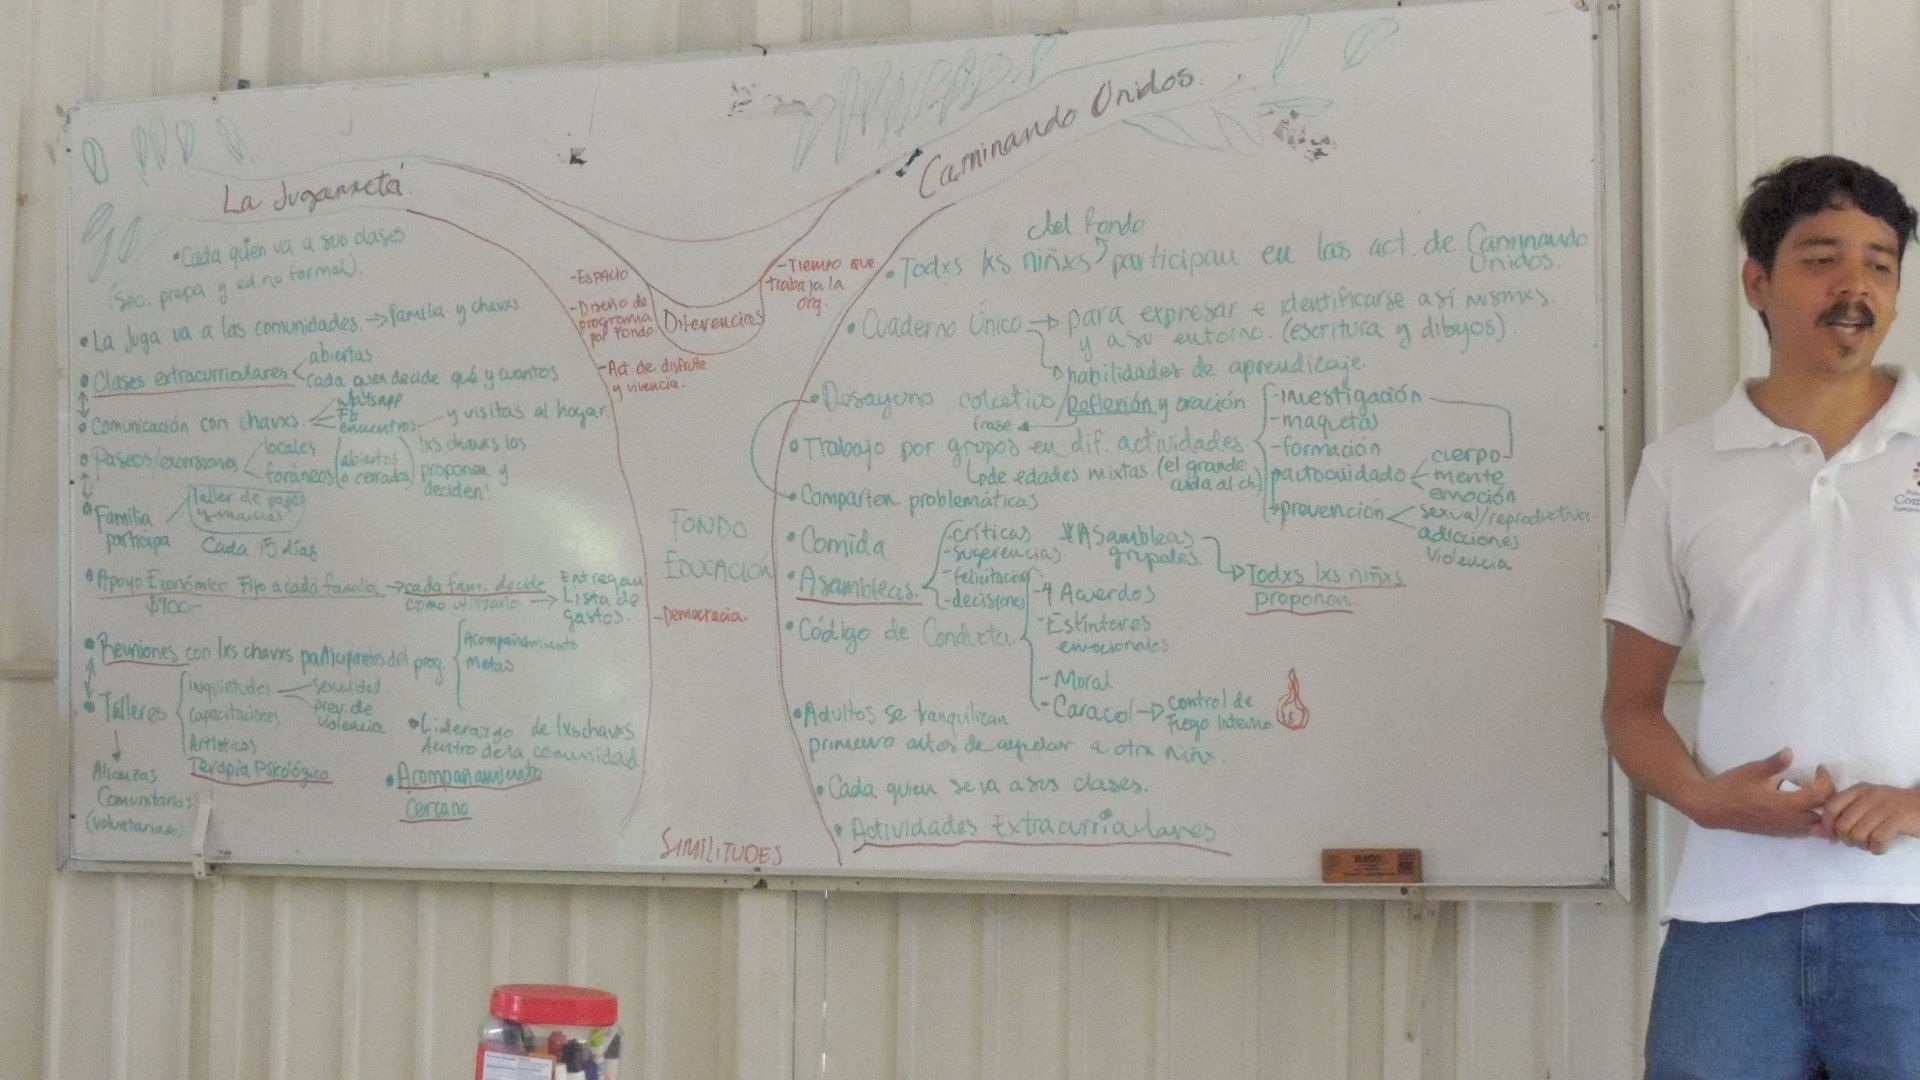 La Juganreta
• Cada quien va a sus clases
(sec. prepa y ed. no formal).
• La Juga va a las comunidades. → familia y chavxs
• Clases extracurriculares < abiertas
cada quien decide qué y cuantos
• Comunicación con chavxs. < Whatsapp
Fb
encuentros - y visitas al hogar.
• Paseos/excursiones < locales
foráneos (abiertos o cerrados) lxs chavxs los
proponen y
deciden!
• Familia
participa
Taller de papás
y mamás
Cada 15 días
• Apoyo Económico Fijo a cada familia → cada fam. decide
como utilizarlo → Entregan
Lista de
gastos.
$900-
• Reuniones con lxs chavxs participantes del prog. { Acompañamiento
Metas
• Talleres { inquietudes - sexualidad
prev. de
violencia
Capacitaciones
Artísticos
Terapia Psicológico
Alianzas
Comunitarias
(voluntariado)
• Liderazgo de lxs chavxs
dentro de la comunidad
• Acompañamiento
Cercano
- ESPACIO
- Diseño de
programa
por Fondo
- Act. de disfrute
y vivencia.
Diferencias
- Tiempo que
trabaja la
org.
FONDO
EDUCACIÓN
- Democracia.
SIMILITUDES
Caminando Unidos.
del fondo
• Todxs lxs niñxs participan en las act. de Caminando
Unidos.
• Cuaderno Único → para expresar e identificarse así mismxs.
y a su entorno. (escritura y dibujos).
→ habilidades de aprendizaje.
• Desayuno colectivo/reflexión y oración
frase
• Trabajo por grupos en dif. actividades
de edades mixtas (el grande
cuida al ch)
- investigación
- maquetas
- formación
autocuidado < cuerpo
mente
emoción
prevención < sexual/reproductiva
adicciones
violencia
• Comparten problemáticas
• Comida
• Asambleas. { - críticas
- sugerencias
- felicitación
- decisiones
* Asambleas
grupales.
→ Todxs lxs niñxs
proponen
• Código de Conducta { - 4 Acuerdos
- Extinteres
emocionales
- Moral
- Caracol → control de
fuego interno.
• Adultos se tranquilizan
primero antes de ayudar a otrx niñx.
• Cada quien se va a sus clases.
• Actividades Extracurriculares